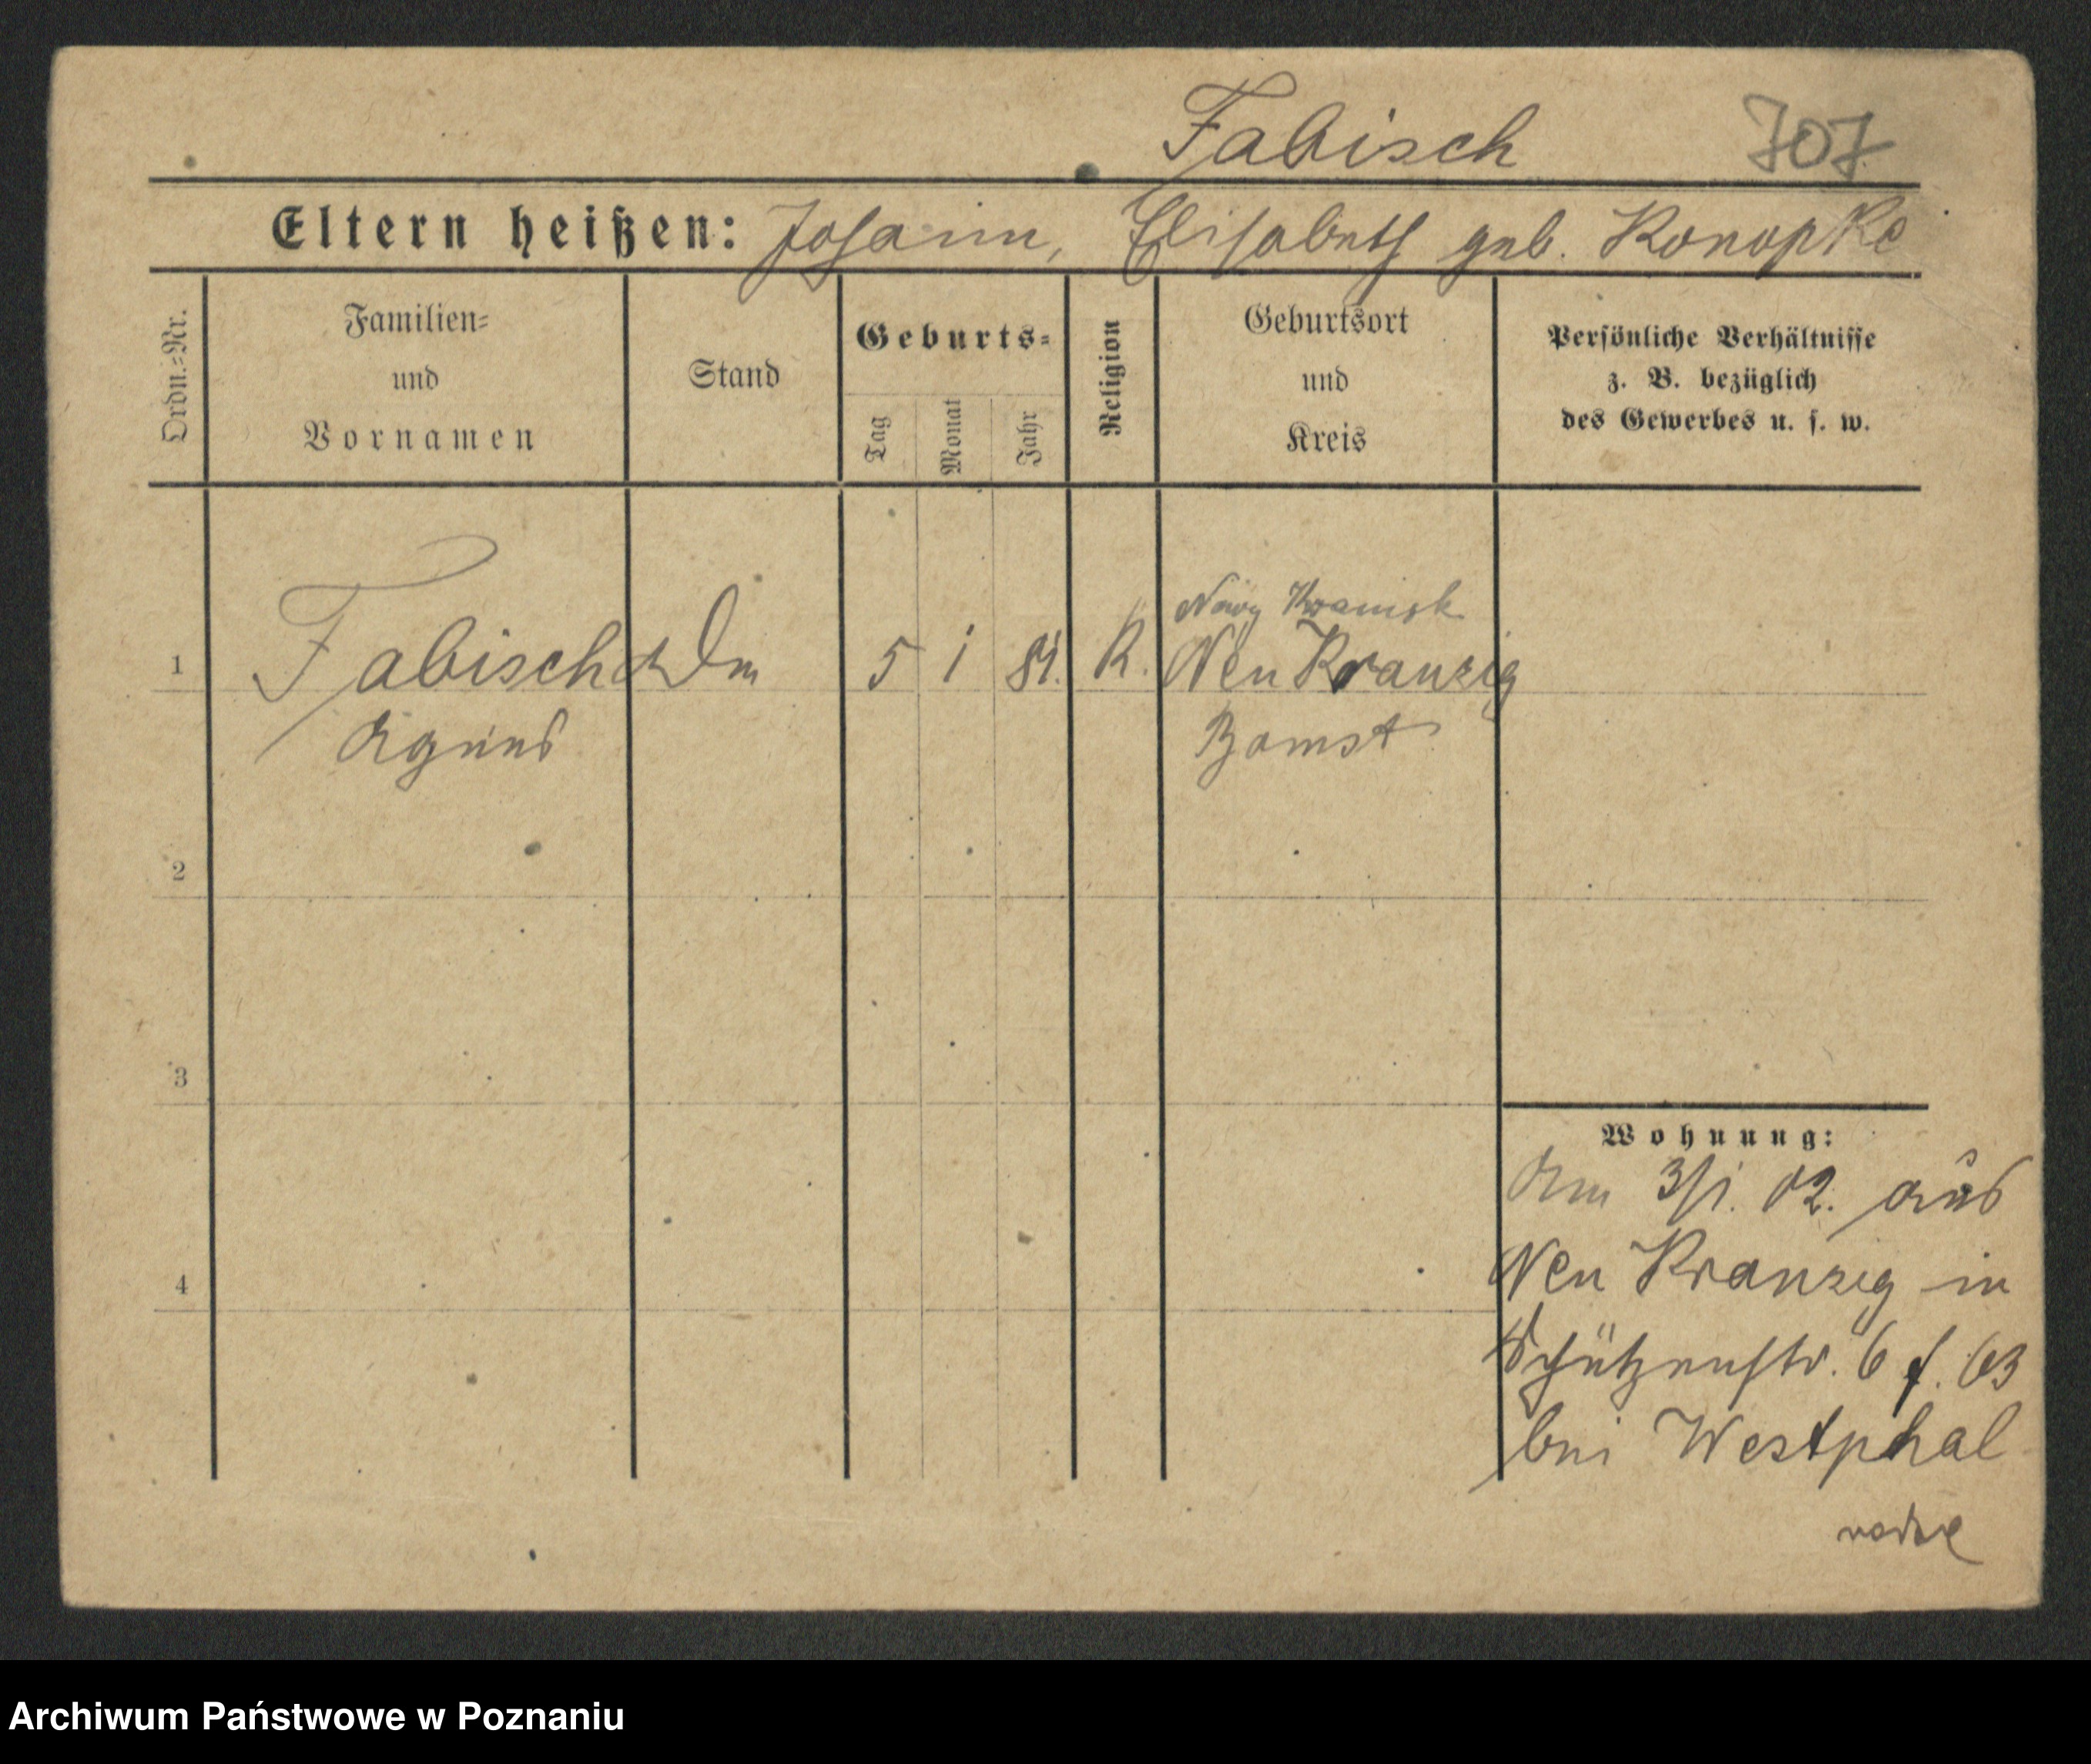 Fabisch 707
Eltern heißen: Johann, Elisabeth geb. Konopke
Ordn.=Nr.
Familien=
und
Vornamen
Stand
Geburts=
Tag
Monat
Jahr
Religion
Geburtsort
und
Kreis
Persönliche Verhältnisse
z. B. bezüglich
des Gewerbes u. s. w.
Nowy Kramsk
1 Fabisch 5 1 81. K. Neu Kranzig
Agnes Bomst
2
3
4
Wohnung:
Am 3/1. 02. aus
Neu Kranzig in
Schützenstr. 6 f. 63
bei Westphal
Archiwum Państwowe w Poznaniu